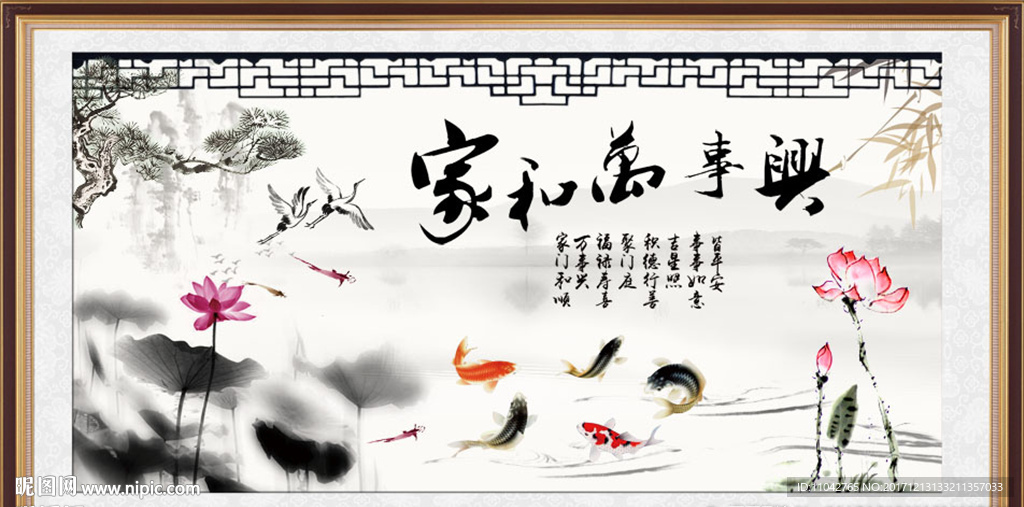 家和萬事興
家门和顺
万事兴
福禄寿喜
聚门庭
积德行善
吉星照
事事如意
皆平安
昵图网 www.nipic.com
ID:11042765 NO:20171213133211357033